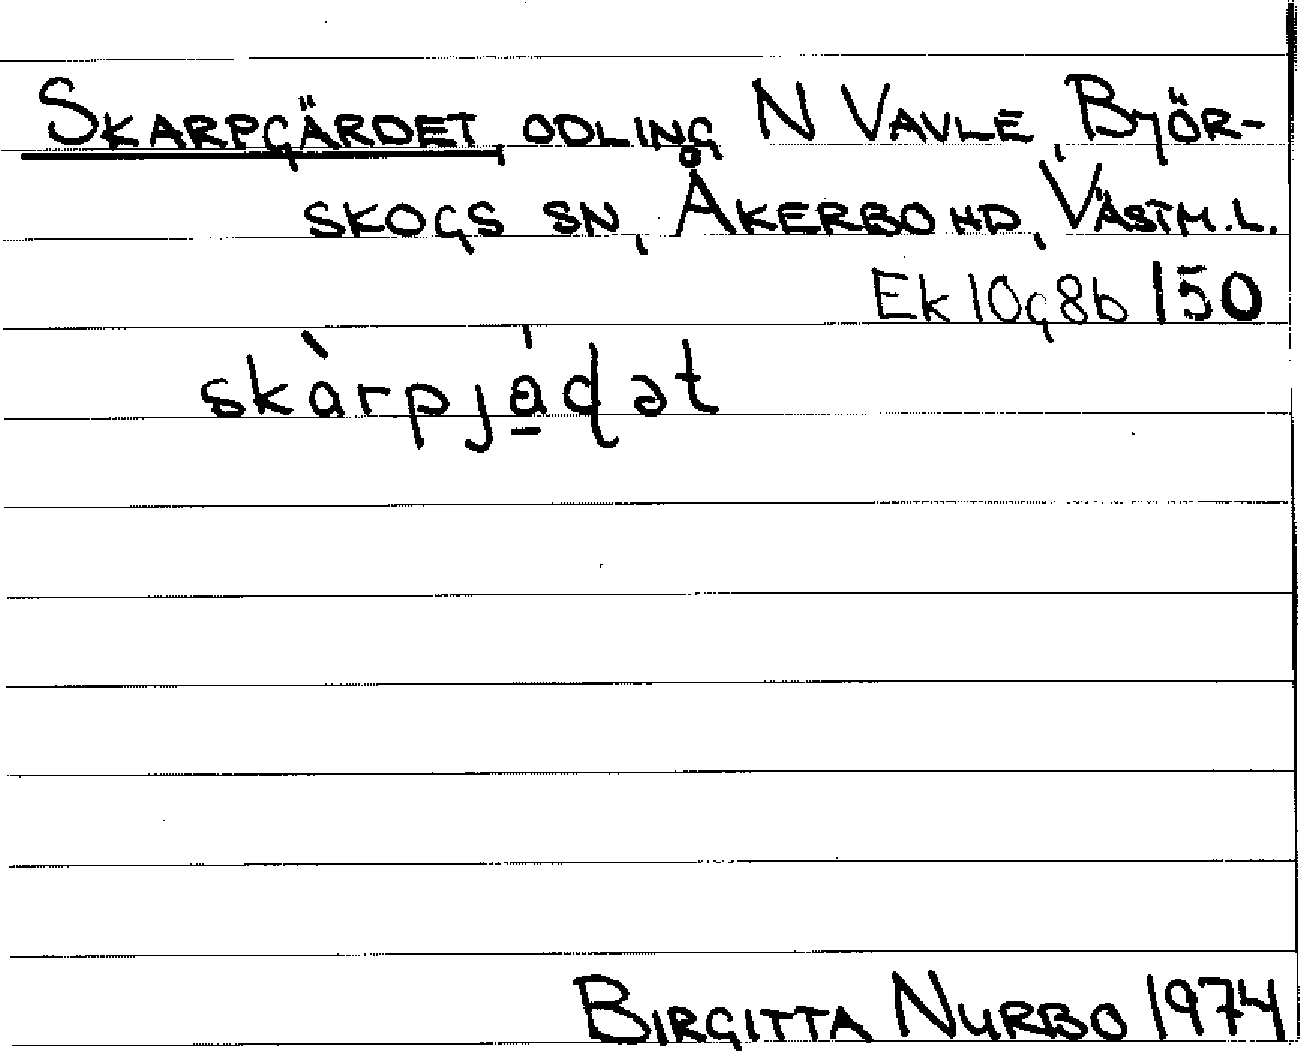 SKARPGÄRDET, ODLING N VAVLE, BJÖR-
SKOGS SN, ÅKERBO HD, VÄSTM.L.
Ek 10g8b 150
skàrpjá̱ɖət
BIRGITTA NURBO 1974